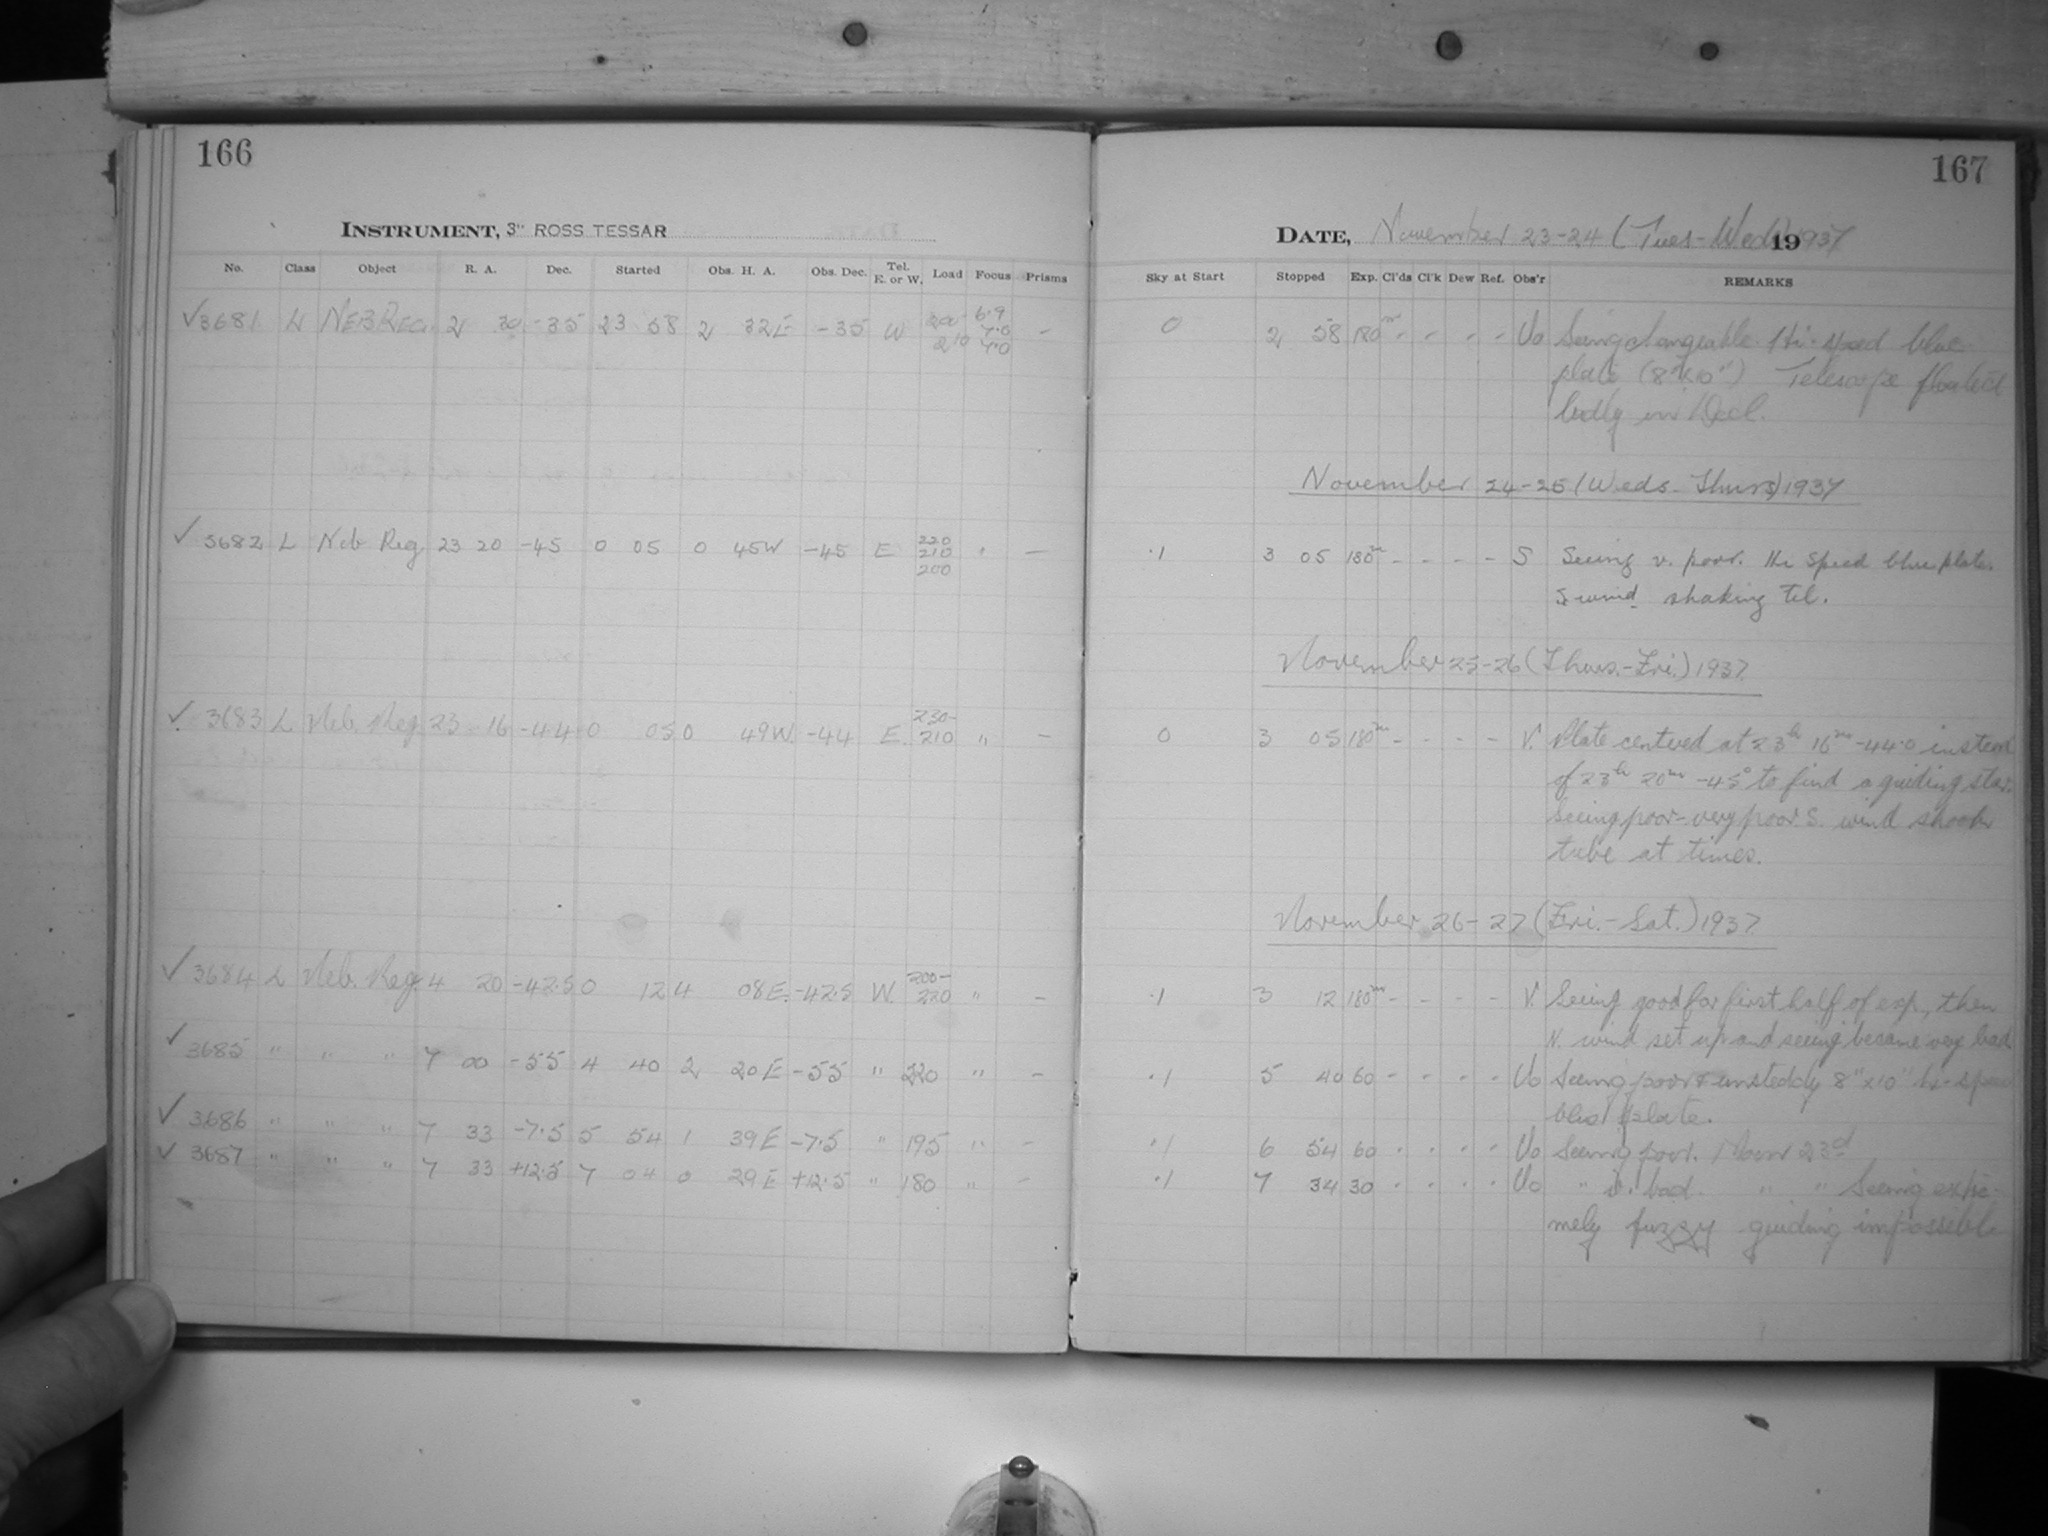 166
INSTRUMENT, 3" ROSS TESSAR
No. Class Object R. A. Dec. Started Obs. H. A. Obs. Dec. Tel. E. or W. Load Focus Prisms
✓3681 L NEB REG. 2 30 -35 23 58 2 32E -35 W 200 210 6.9 7.0 7.0 -
✓ 3682 L Neb Reg. 23 20 -45 0 05 0 45W -45 E 220 210 200 " -
✓ 3683 L Neb. Reg. 23 16 -44 0 05 0 49W. -44 E. 230- 210 " -
✓ 3684 L Neb. Reg. 4 20 -42.5 0 12 4 08E. -42.5 W. 200- 220 " -
✓ 3685 " " " 7 00 -55 4 40 2 20E -55 " 220 " -
✓ 3686 " " " 7 33 -7.5 5 54 1 39E -7.5 " 195 " -
✓ 3687 " " " 7 33 +12.5 7 04 0 29E +12.5 " 180 " -
167
DATE, November 23-24 (Tues-Wed) 19 1937
Sky at Start Stopped Exp. Cl'ds Cl'k Dew Ref. Obs'r REMARKS
0 2 58 180m - - - - Uo Seeing changeable. Hi-speed blue
plate (8"x10") Telescope floated
badly in Decl.
November 24-25 (Weds-Thurs) 1937
.1 3 05 180m - - - - S Seeing v. poor. Hi speed blue plate.
S wind shaking tel.
November 25-26 (Thurs.-Fri.) 1937
0 3 05 180m - - - - V. Plate centred at 23h 16m -44.0 instead
of 23h 20m -45° to find a guiding star.
Seeing poor-very poor. S. wind shook
tube at times.
November 26-27 (Fri.-Sat.) 1937
.1 3 12 180m - - - - V. Seeing good for first half of exp., then
N. wind set up and seeing became very bad
.1 5 40 60 - - - - Uo Seeing poor & unsteddy 8"x10" hi-speed
blue plate.
.1 6 54 60 - - - - Uo Seeing poor. Moon 23d
.1 7 34 30 - - - - Uo " v. bad. " " Seeing extre-
mely fuzzy guiding impossible